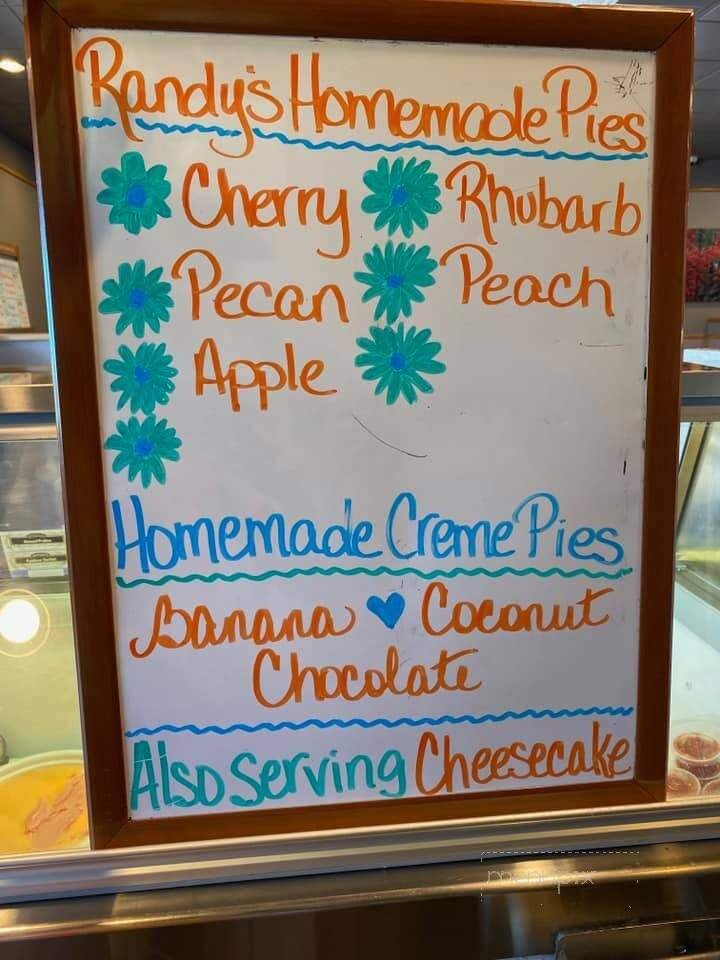 Randy's Homemade Pies
Cherry Rhubarb
Pecan Peach
Apple
Homemade Creme Pies
Banana Coconut
Chocolate
Also Serving Cheesecake
menupix